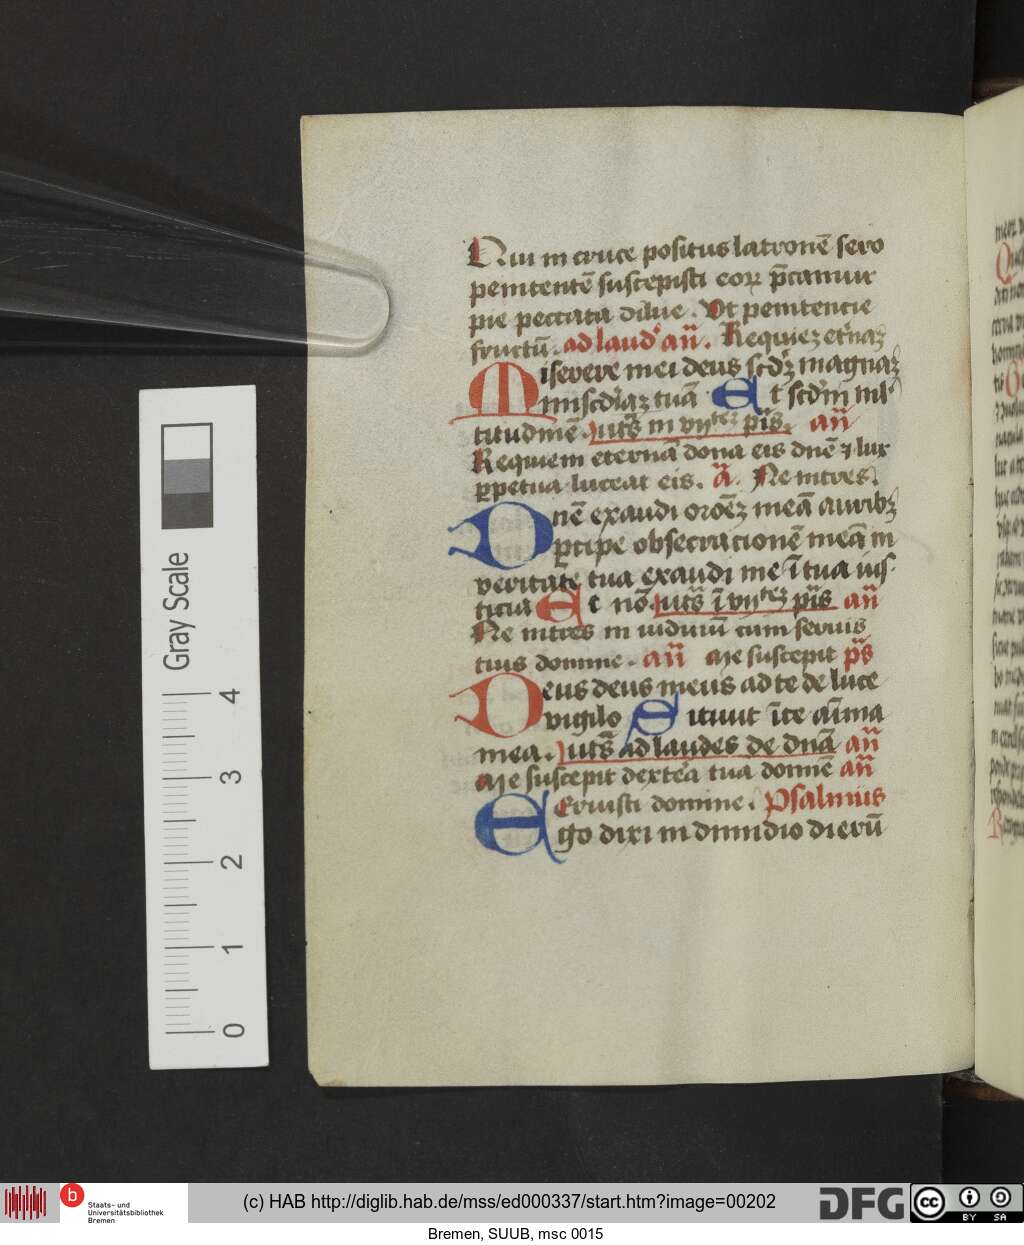 Qui in cruce positus latronē sero
penitentē suscepisti eoꝝ p̄camur
pie peccata dilue. Ut penitencie
fructū. ad laud' an̄. Requiez et'naz
Miserere mei deus scd'z magnaz
miscd'iaz tuā Et scd'm ml'
titudinē. ut s̄ in vij tez p̄s. an̄
Requiem eternā dona eis dn̄e ⁊ lux
ꝑpetua luceat eis. ā. Ne intres.
Dn̄e exaudi oroēz meā auribz
ꝑcipe obsecracionē meā in
veritate tua exaudi me ī tua ius
ticia Et nō ut s̄ ī vij tez p̄s an̄
Ne intres in iudiciū cum seruis
tuis domine. an̄ Me suscepit p̄s
Deus deus meus ad te de luce
vigilo Sitiuit ī te aīma
mea. ut s̄ ad laudes de dn̄a an̄
Me suscepit dextēa tua domē an̄
Eruisti domine. Psalmus
Ego dixi in dimidio dierū
Gray Scale
4
3
2
1
0
b Staats- und
Universitätsbibliothek
Bremen
(c) HAB http://diglib.hab.de/mss/ed000337/start.htm?image=00202
DFG
cc BY SA
Bremen, SUUB, msc 0015